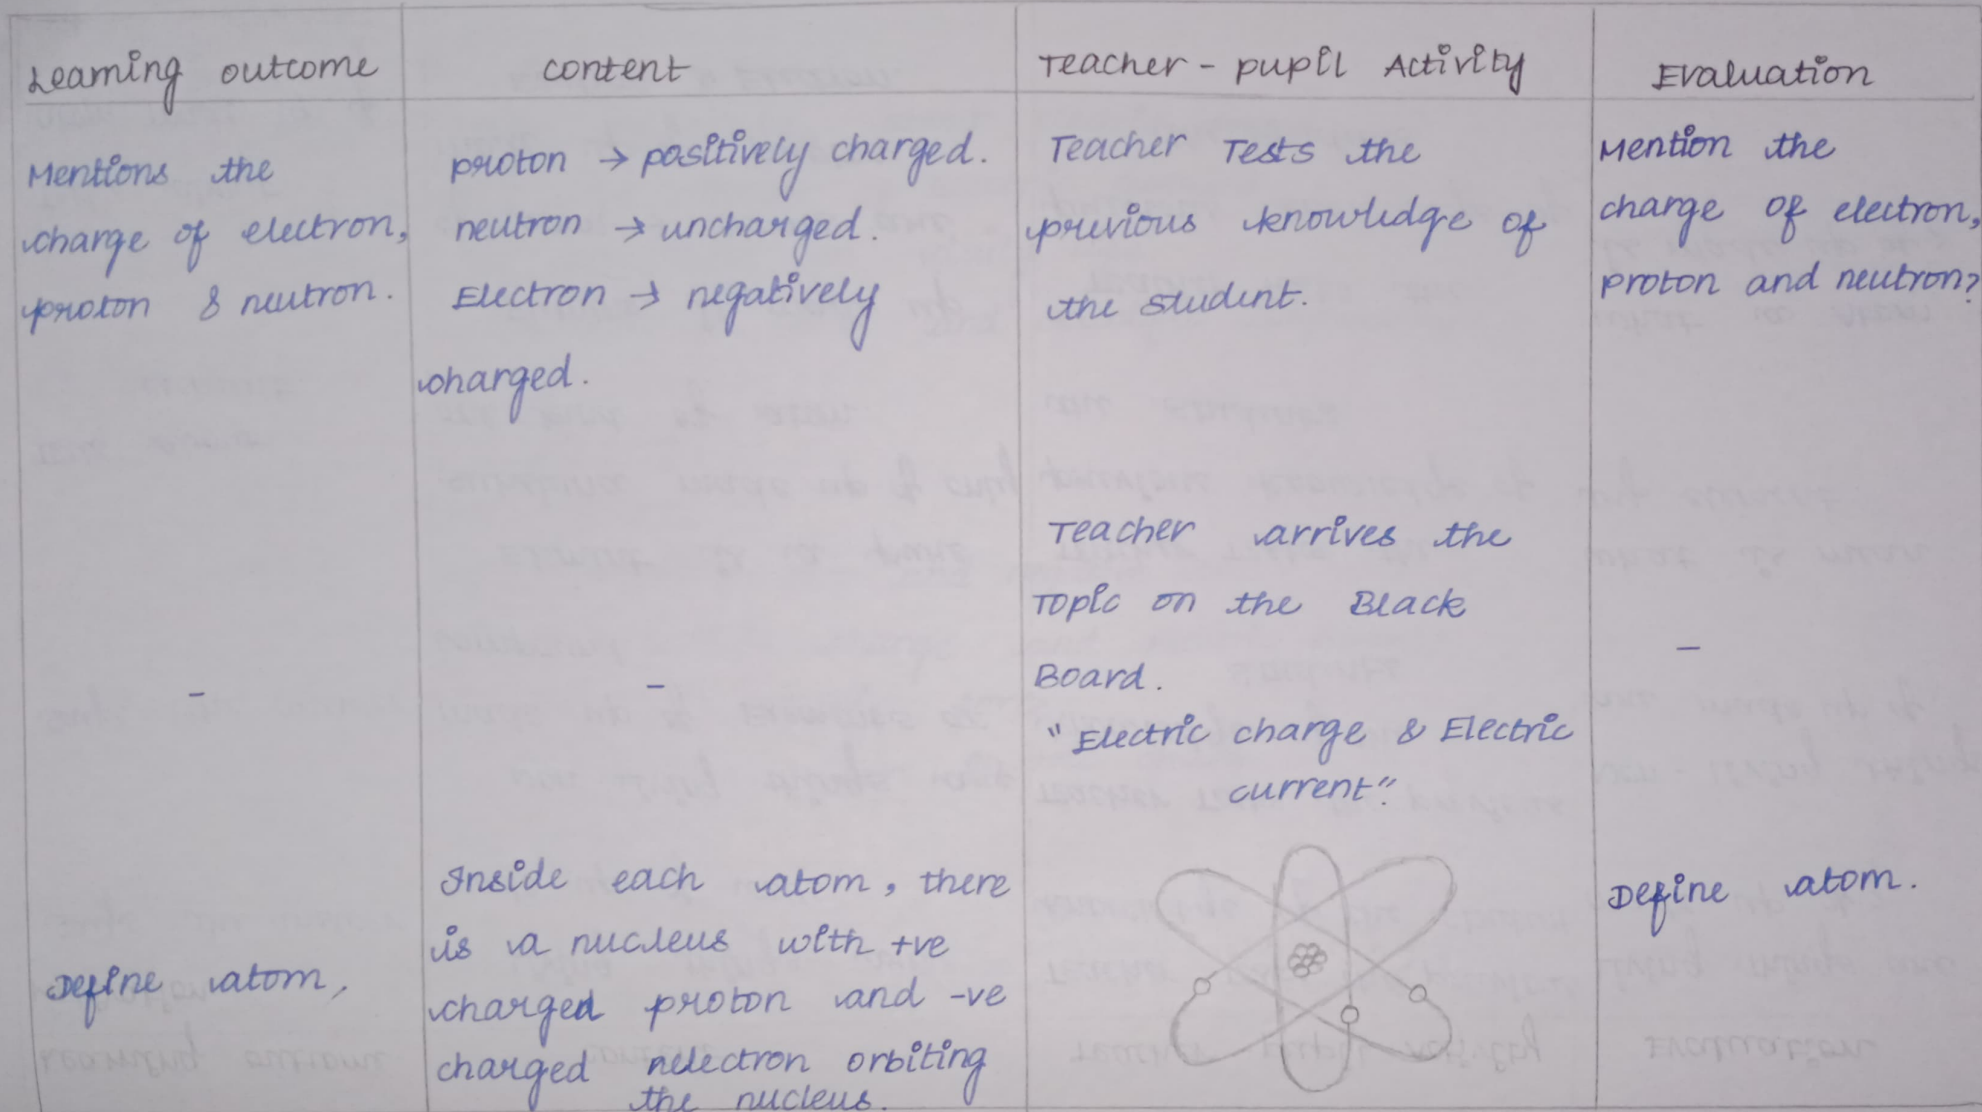 Learning outcome
content
Teacher - pupil Activity
Evaluation
Mentions the
charge of electron,
proton & neutron.
proton → positively charged.
neutron → uncharged.
Electron → negatively
charged.
Teacher Tests the
previous knowledge of
the student.
Mention the
charge of electron,
proton and neutron?
-
-
Teacher arrives the
Topic on the Black
Board.
"Electric charge & Electric
current".
-
Define atom,
Inside each atom, there
is a nucleus with +ve
charged proton and -ve
charged nelectron orbiting
the nucleus.
Define atom.